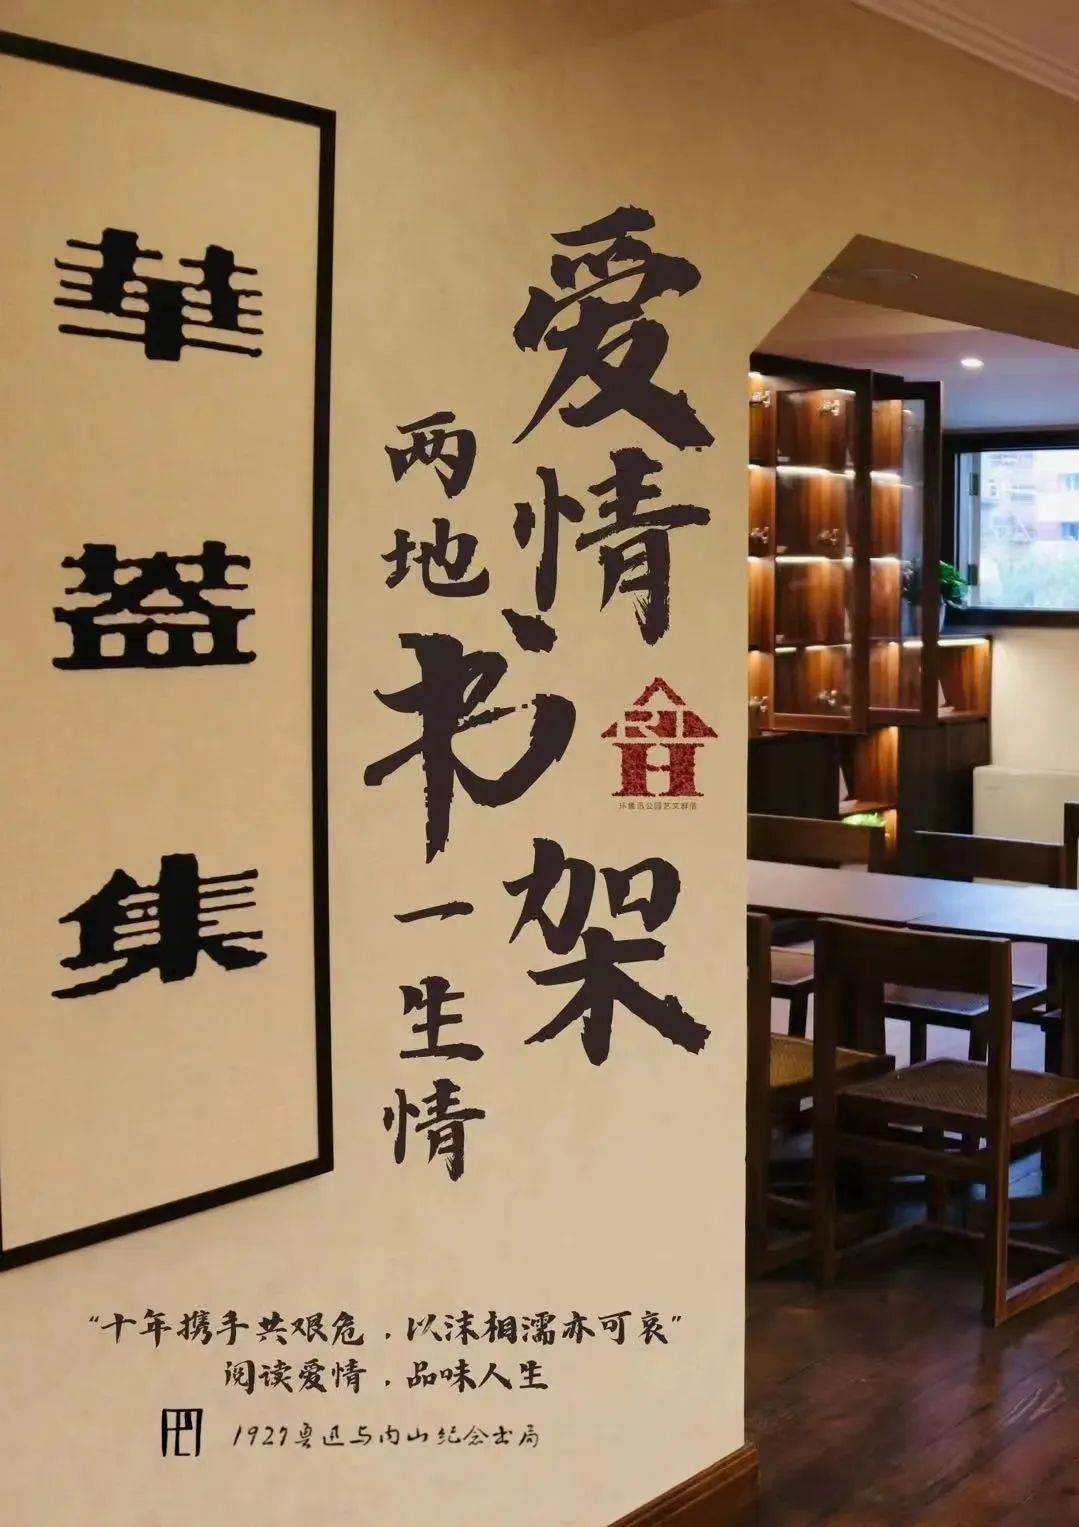 華蓋集
爱情书架
两地书一生情
ART
H
环鲁迅公园艺文群落
“十年携手共艰危，以沫相濡亦可哀”
阅读爱情，品味人生
1927鲁迅与内山纪念书局